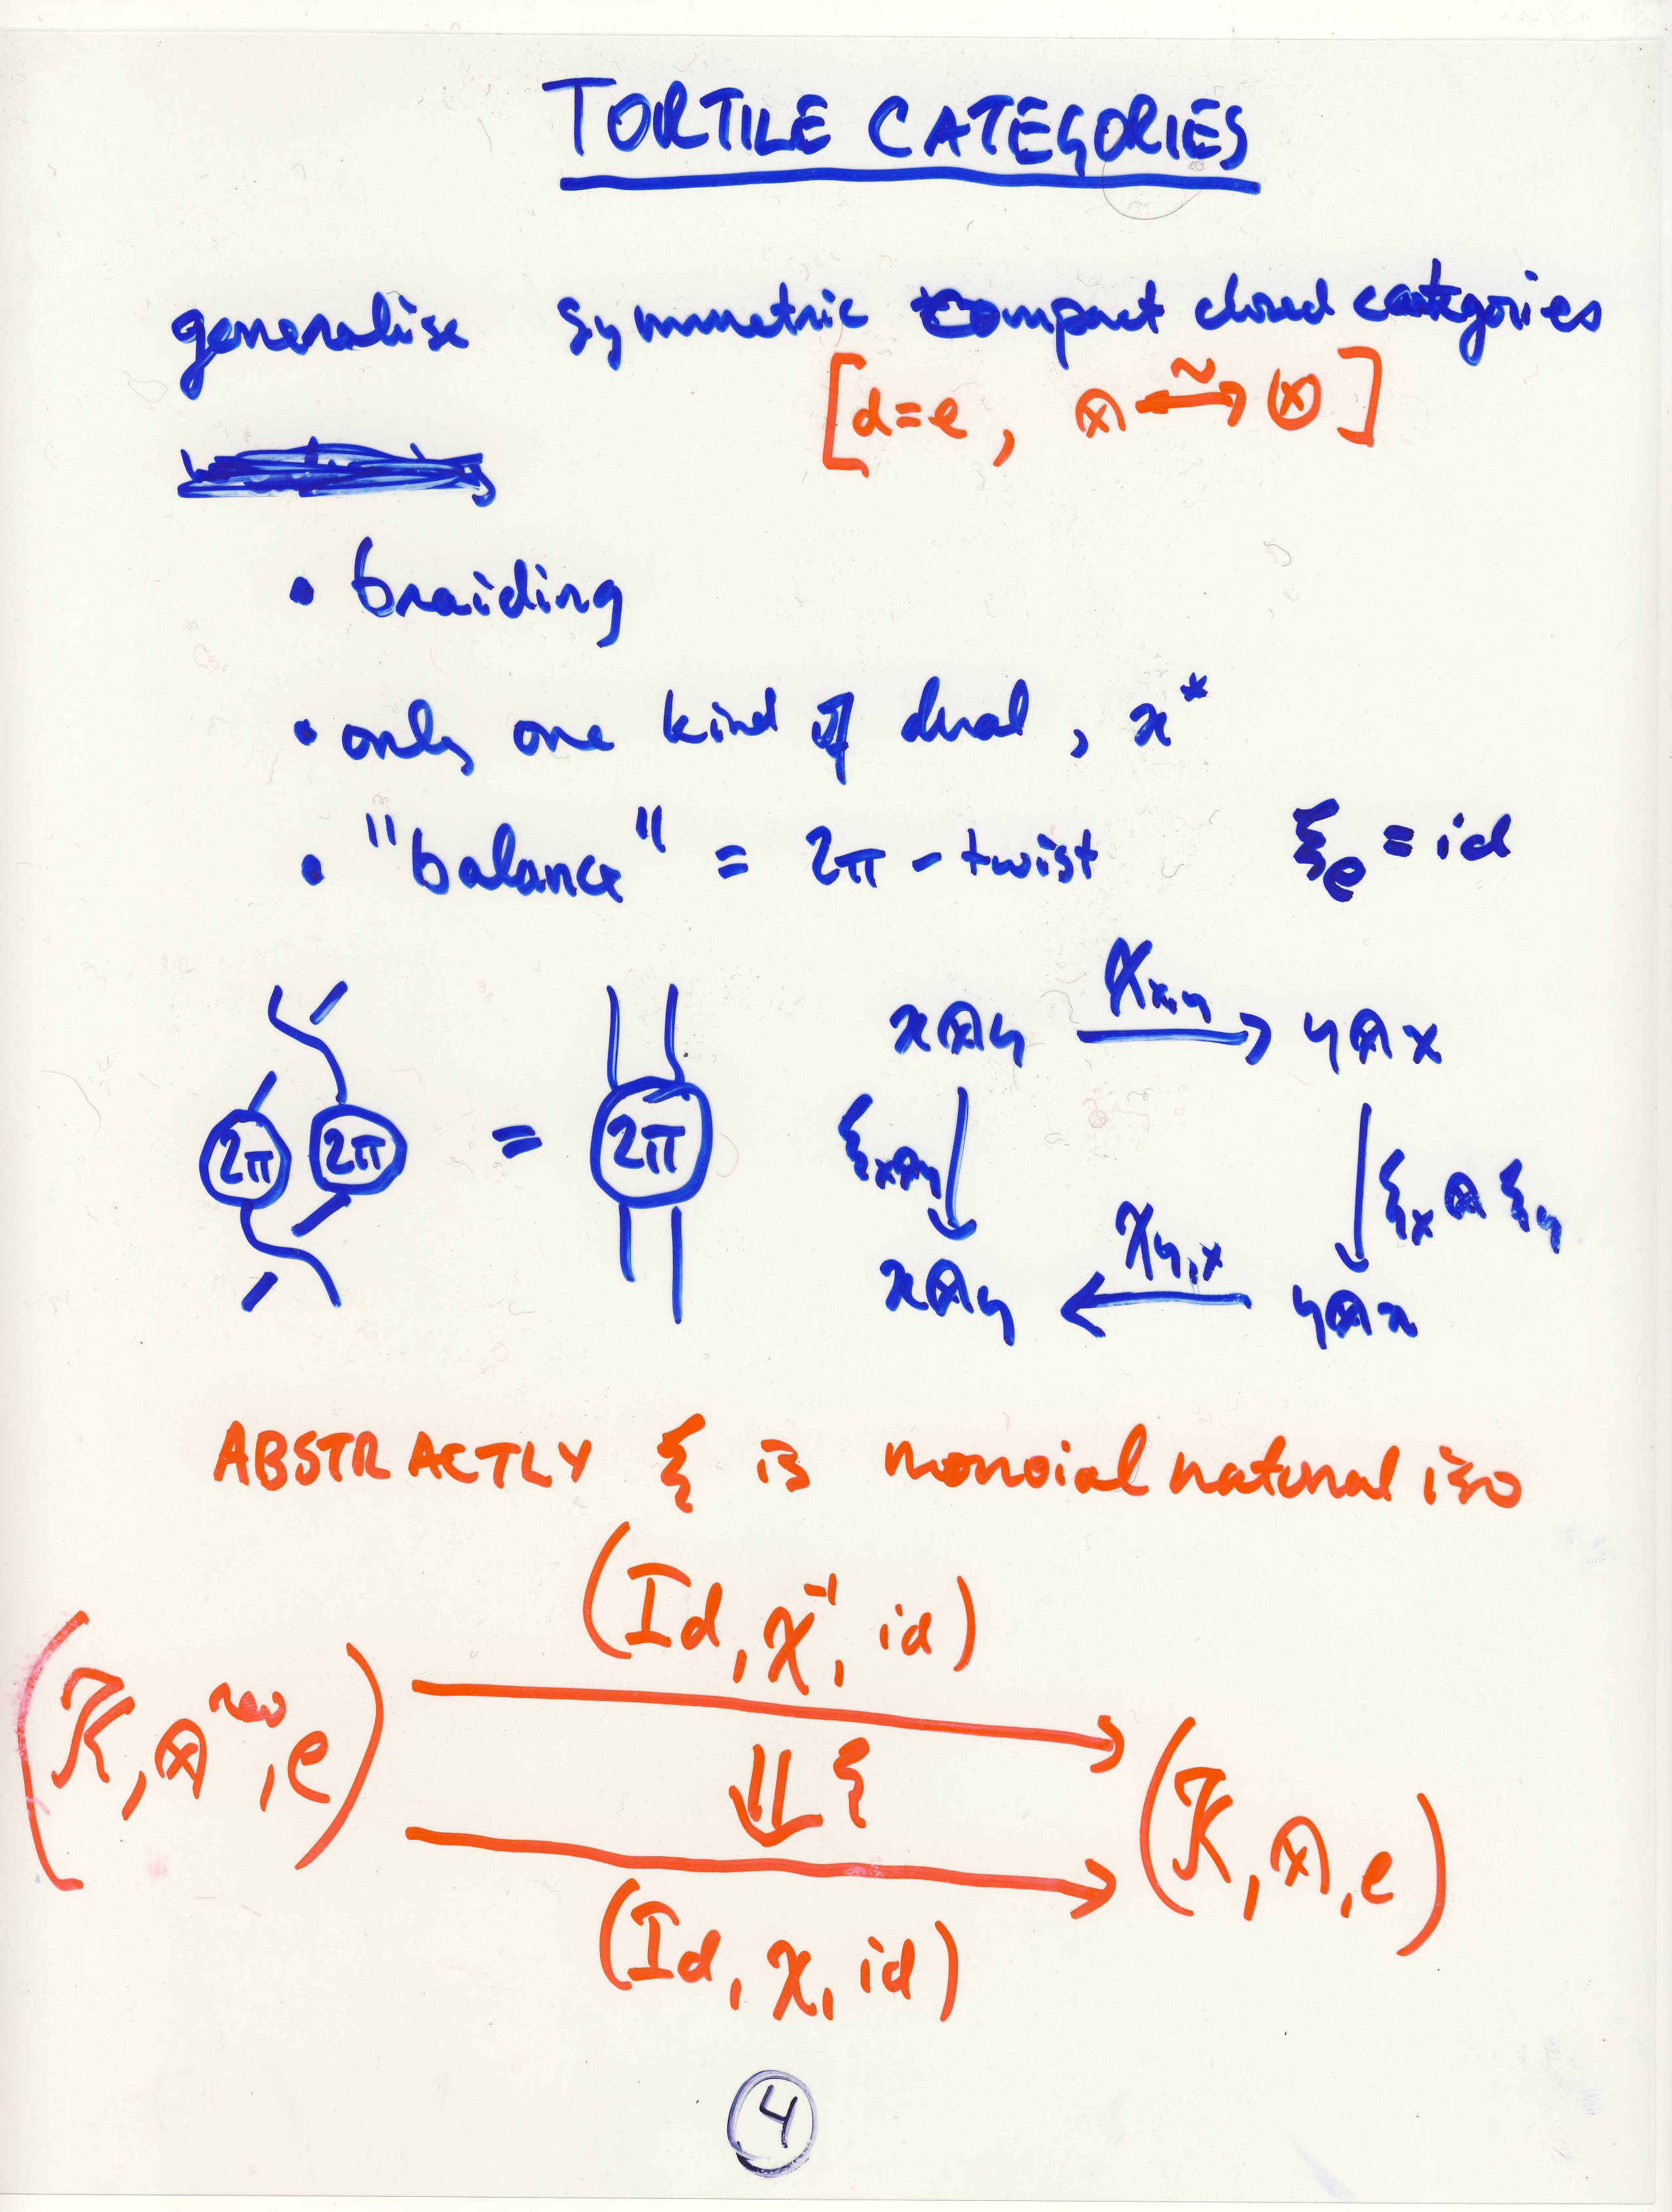 TORTILE CATEGORIES
generalise symmetric compact closed categories
[d=e, ⊗ ⟷~ ⊗]
• braiding
• only one kind of dual, x*
• "balance" = 2π-twist ξ_e = id
x⊗y χ_{x,y} → y⊗x
2π 2π = 2π ξ_{x⊗y} ↓ ↓ ξ_x ⊗ ξ_y
x⊗y ← χ_{y,x} y⊗x
ABSTRACTLY ξ is monoial natural iso
(Id, χ⁻¹, id)
(𝒦, ⊗^rev, e) ⇓ ξ (𝒦, ⊗, e)
(Id, χ, id)
4